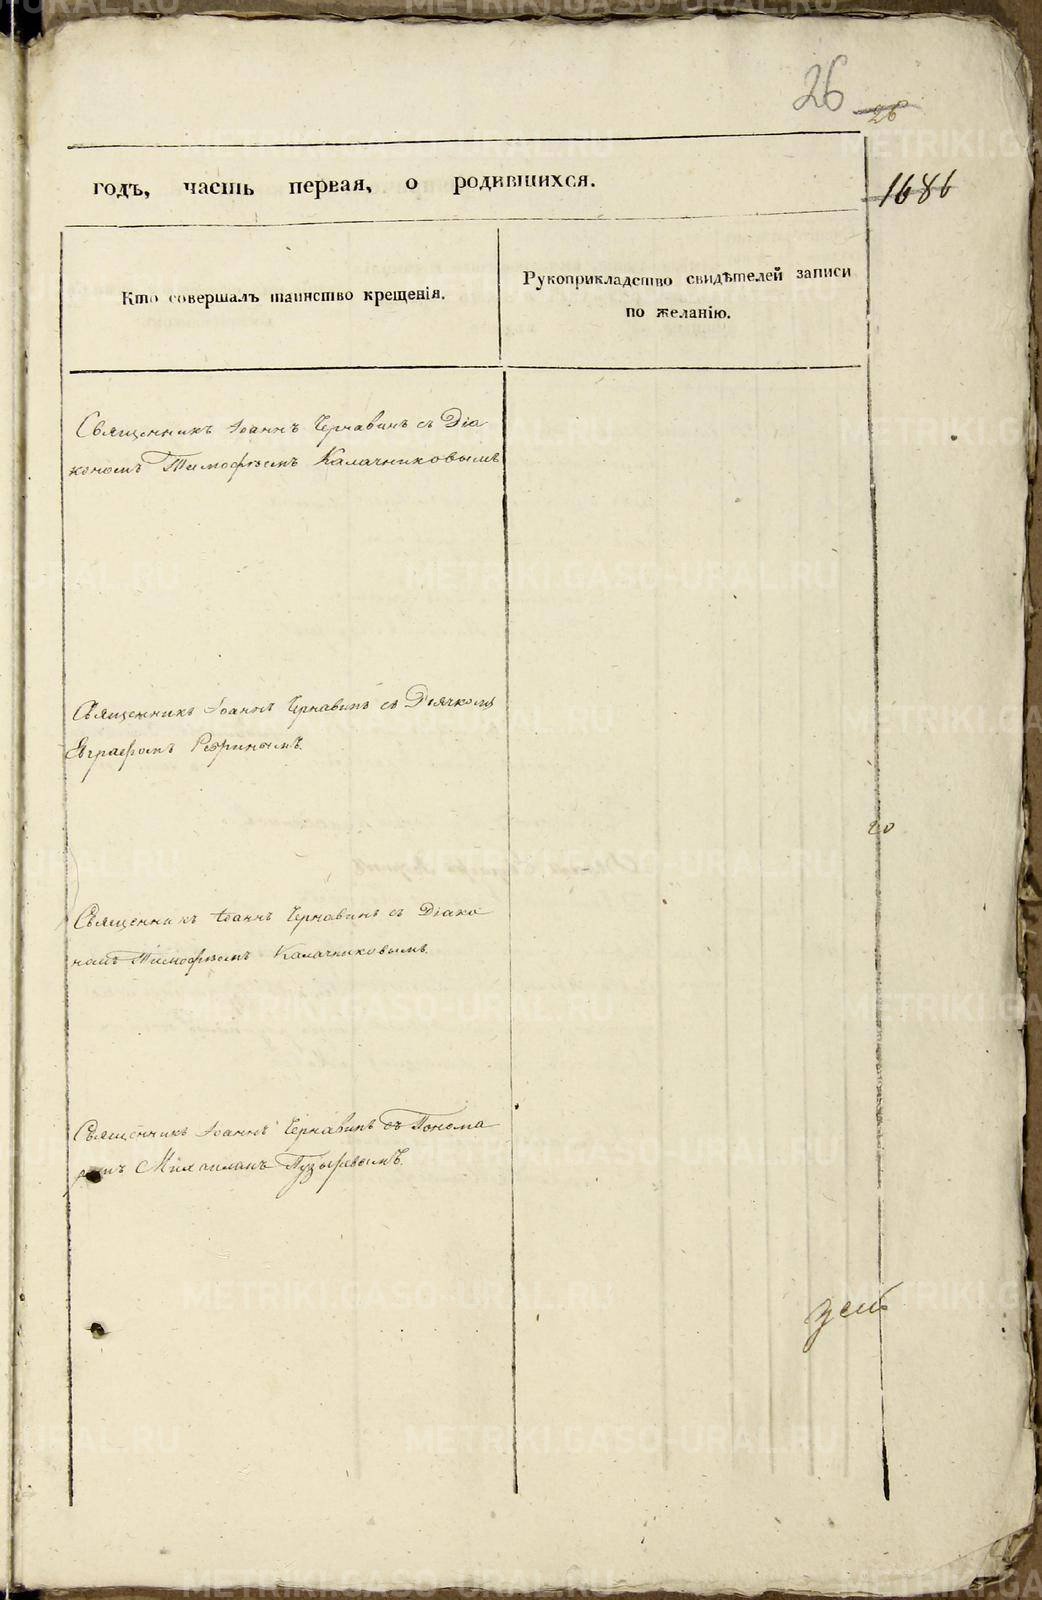 26
26
годъ, часть первая, о родившихся.
1686
Кто совершалъ таинство крещенія.
Рукоприкладство свидѣтелей записи
по желанію.
Священникъ Іоаннъ Чернавинъ съ Діа
кономъ Тимофѣемъ Калачниковымъ
Священникъ Іоаннъ Чернавинъ съ Дьячкомъ
Евграфомъ
20
Священникъ Іоаннъ Чернавинъ съ Діако
номъ Тимофѣемъ Калачниковымъ.
Священникъ Іоаннъ Чернавинъ съ Понома
ремъ Михаиломъ Пузыревымъ.
METRIKI.GASO-URAL.RU